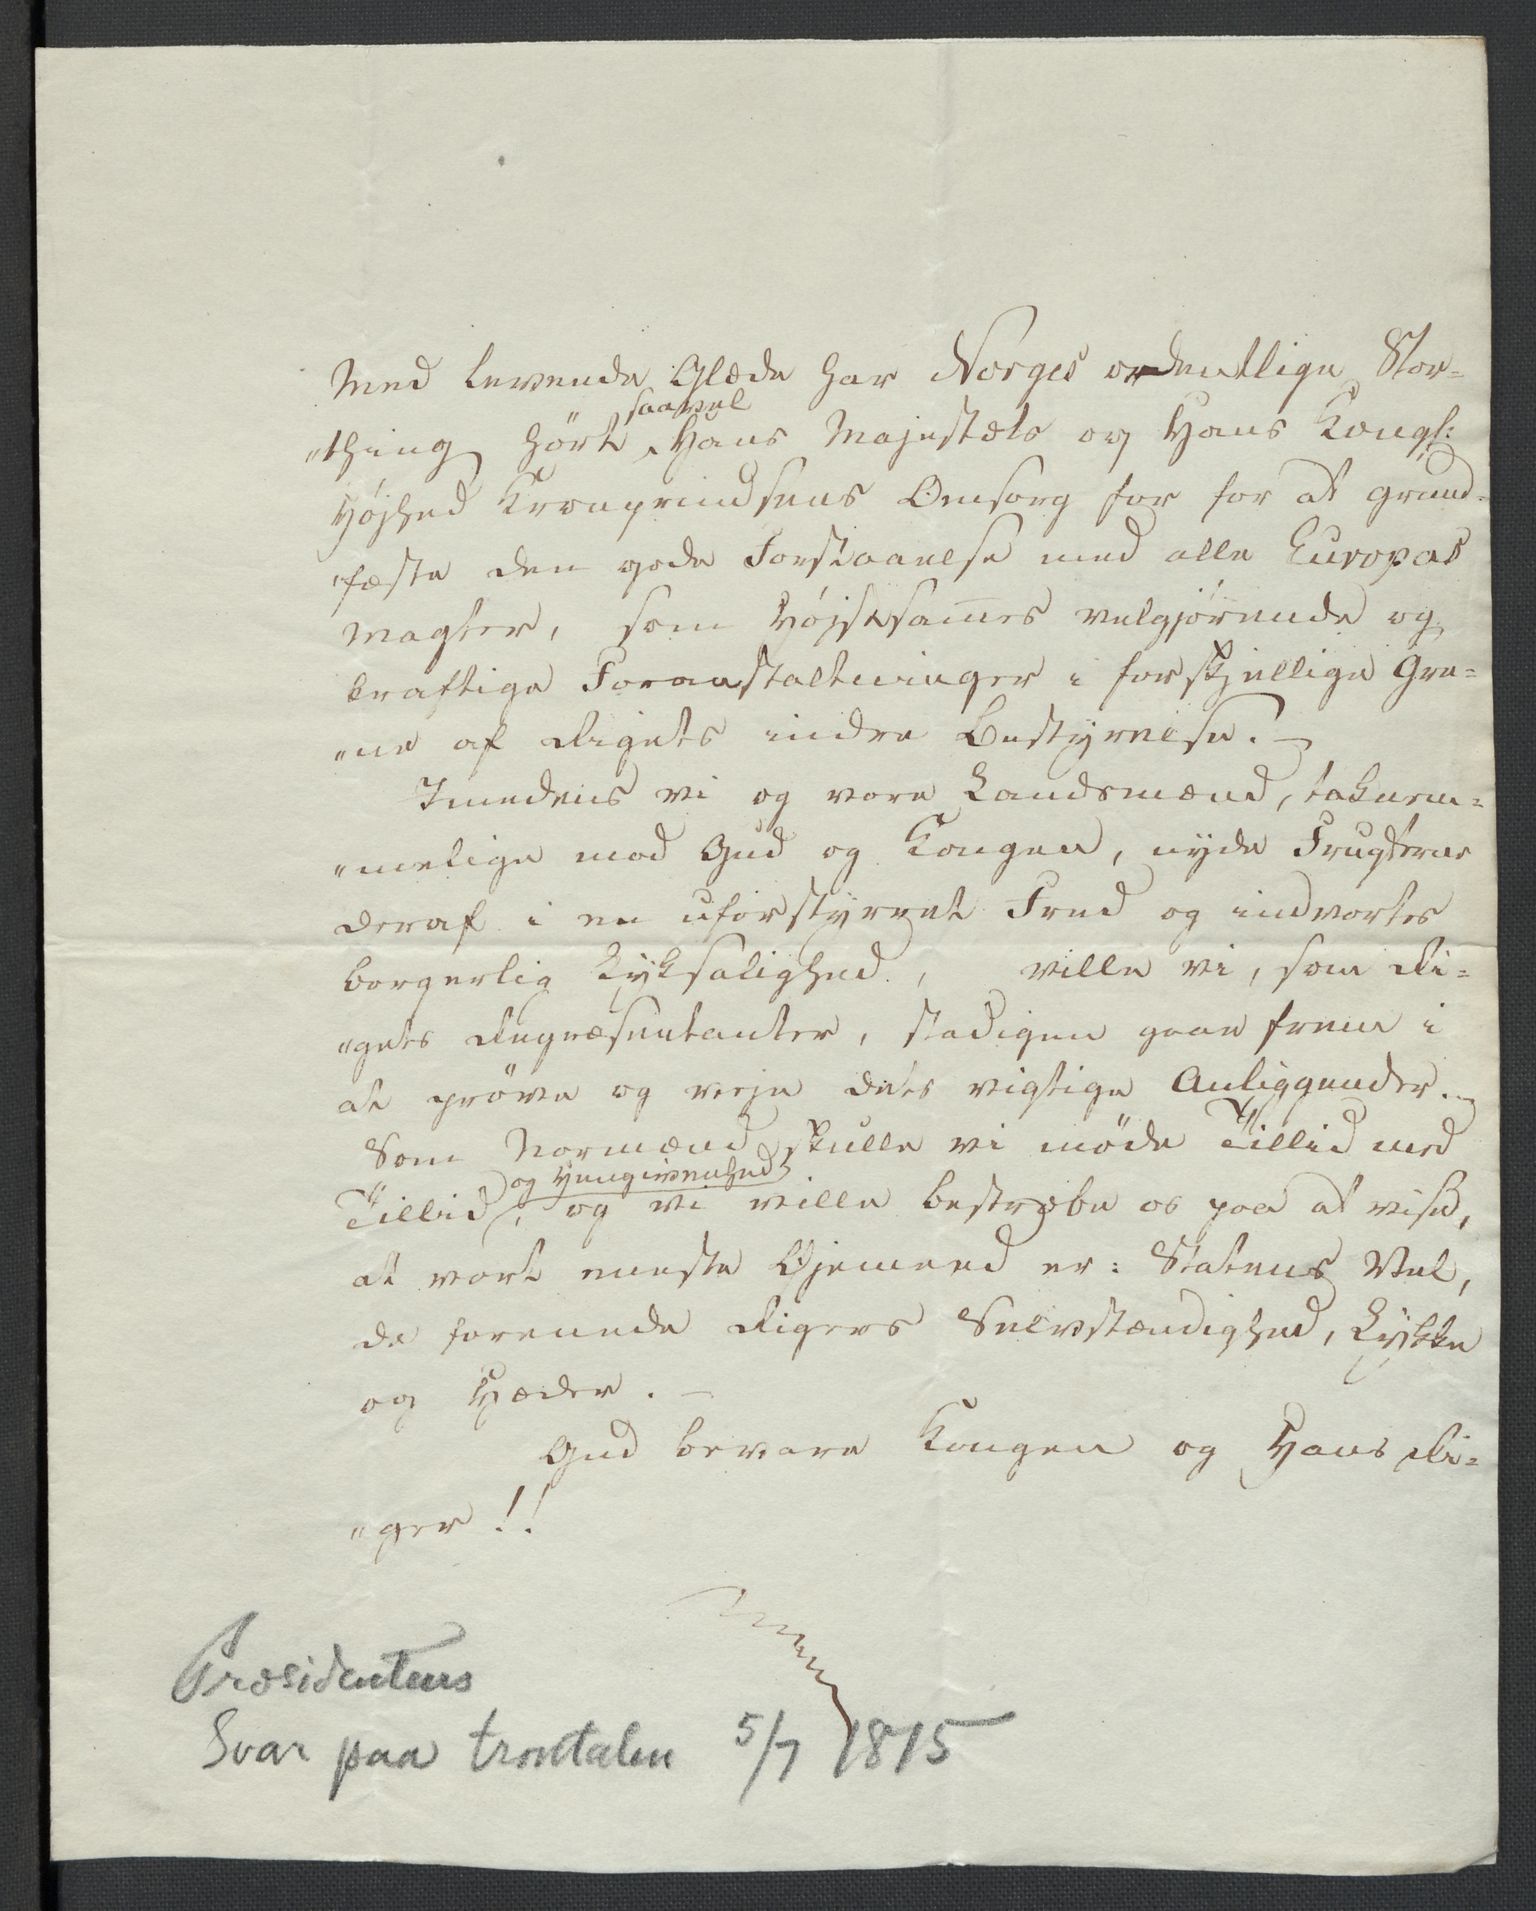 Med levende Glæde har Norges ordentlige Stor=
saavel
"thing hört Hans Majestæts og Hans Kongl:
Höjhed Kronprindsens Omsorg for for at grund=
"fæste den gode Forstaaelse med alle Europas
Magter, som Höjstsam̄es velgjörende og
kraftige Foranstaltninger i forskjellige Gre=
"ne af Rigets indre Bestyrelse. —
Imedens vi og vore Landsmænd, taknem=
"melige mod Gud og Kongen, nyde Frugterne
deraf i en uforstyrret Fred og indvortes
borgerlig Lyksalighed, ville vi, som Ri=
"gets Repræsentanter, stadigen gaae frem i
at pröve og veje dets vigtige Anliggender. —
Som Normænd skulle vi möde Tillid med
og Hengivenhed
Tillid, og vi ville bestræbe os paa at vise,
at vort eneste Öjemeed er: Statens Vel,
de forenede Rigers Selvstændighed, Lykke
og Hæder. —
Gud bevare Kongen og Hans Ri=
"ger!!
Præsidentens
Svar paa trontalen 5/7 1815